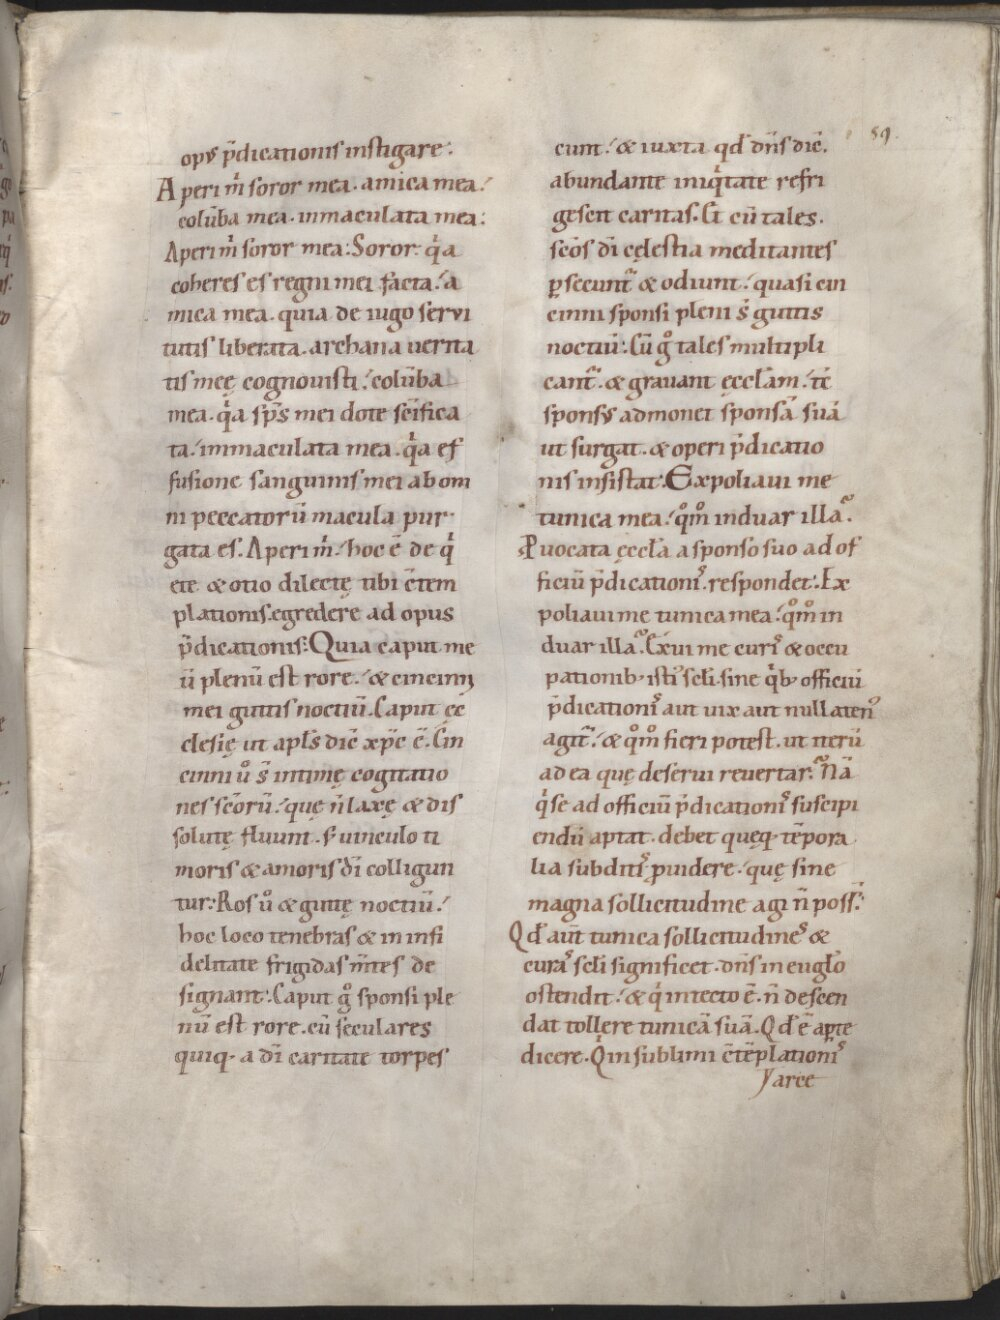 opꝰ p̄dicationis instigare.
Aperi m̍ soror mea. amica mea.
colūba mea. inmaculata mea:
Aperi m̍ soror mea: Soror. q̍a
coheres es regni mei facta. a
mica mea. quia de iugo servi
tutis liberata. archana uerita
tis meę cognouisti. colūba
mea. q̍a sp̄s mei dote sc̄ifica
ta. immaculata mea. q̍a ef
fusione sanguinis mei ab om
ni peccatorū macula pur
gata es. Aperi m̍. hoc ē de q̍
ete & otio dilectę tibi c̄tem
plationis. egredere ad opus
p̄dicationis: Quia caput me
ū plenū est rore. & cincinni
mei guttis noctiū. Caput ęc
clesię ut apl̄s dic̄ xp̄c ē. Cin
cinni ů s̄ intimę cogitatio
nes sc̄orū. quę n̄ laxę & dis
solutę fluunt. s; uinculo ti
moris & amoris dī colligun
tur: Ros ů & guttę noctiū.
hoc loco tenebras & in infi
delitate frigidas m̄tes de
signant. Caput g̊ sponsi ple
nū est rore. cū seculares
quiq. a dī caritate torpes
59.
cunt. & iuxta qd̄ dn̄s dic̄.
abundante iniq̍tate refri
gescit caritas. Et cū tales.
sc̄os dī cęlestia meditantes
ꝑsecunt᷑ & odiunt. quasi cin
cinni sponsi pleni s̄ guttis
noctiū. Cū g̊ tales multipli
cant᷑. & grauant ęccl̄am. tc̄
sponsꝰ admonet sponsā suā
ut surgat. & operi p̄dicatio
nis insistat. Expoliaui me
tunica mea. q̊m̊ induar illa.
Puocata ęccl̄a a sponso suo ad of
ficiū p̄dicationis. respondet. Ex
poliaui me tunica mea. q̊m̊ in
duar illa. Exui me curis & occu
pationib. isti᷒ scl̄i. sine q̍b. officiū
p̄dicationis aut uix aut nullaten᷒
agit᷑. & q̊m̊ fieri potest. ut iterū
ad ea quę deserui reuertar. Nā
q̍ se ad officiū p̄dicationis suscipi
endū aptat. debet quęq. tēpora
lia subditis ꝓuidere. quę sine
magna sollicitudine agi n̄ poss̄.
Qd̄ aut̄ tunica sollicitudines &
curas scl̄i significet. dn̄s in eugl̄o
ostendit. & q̍ in tecto ē. n̄ descen
dat tollere tunicā suā. Qd̄ ē aꝑte
dicere. Q̍ in sublimi c̄tēplationis
arce